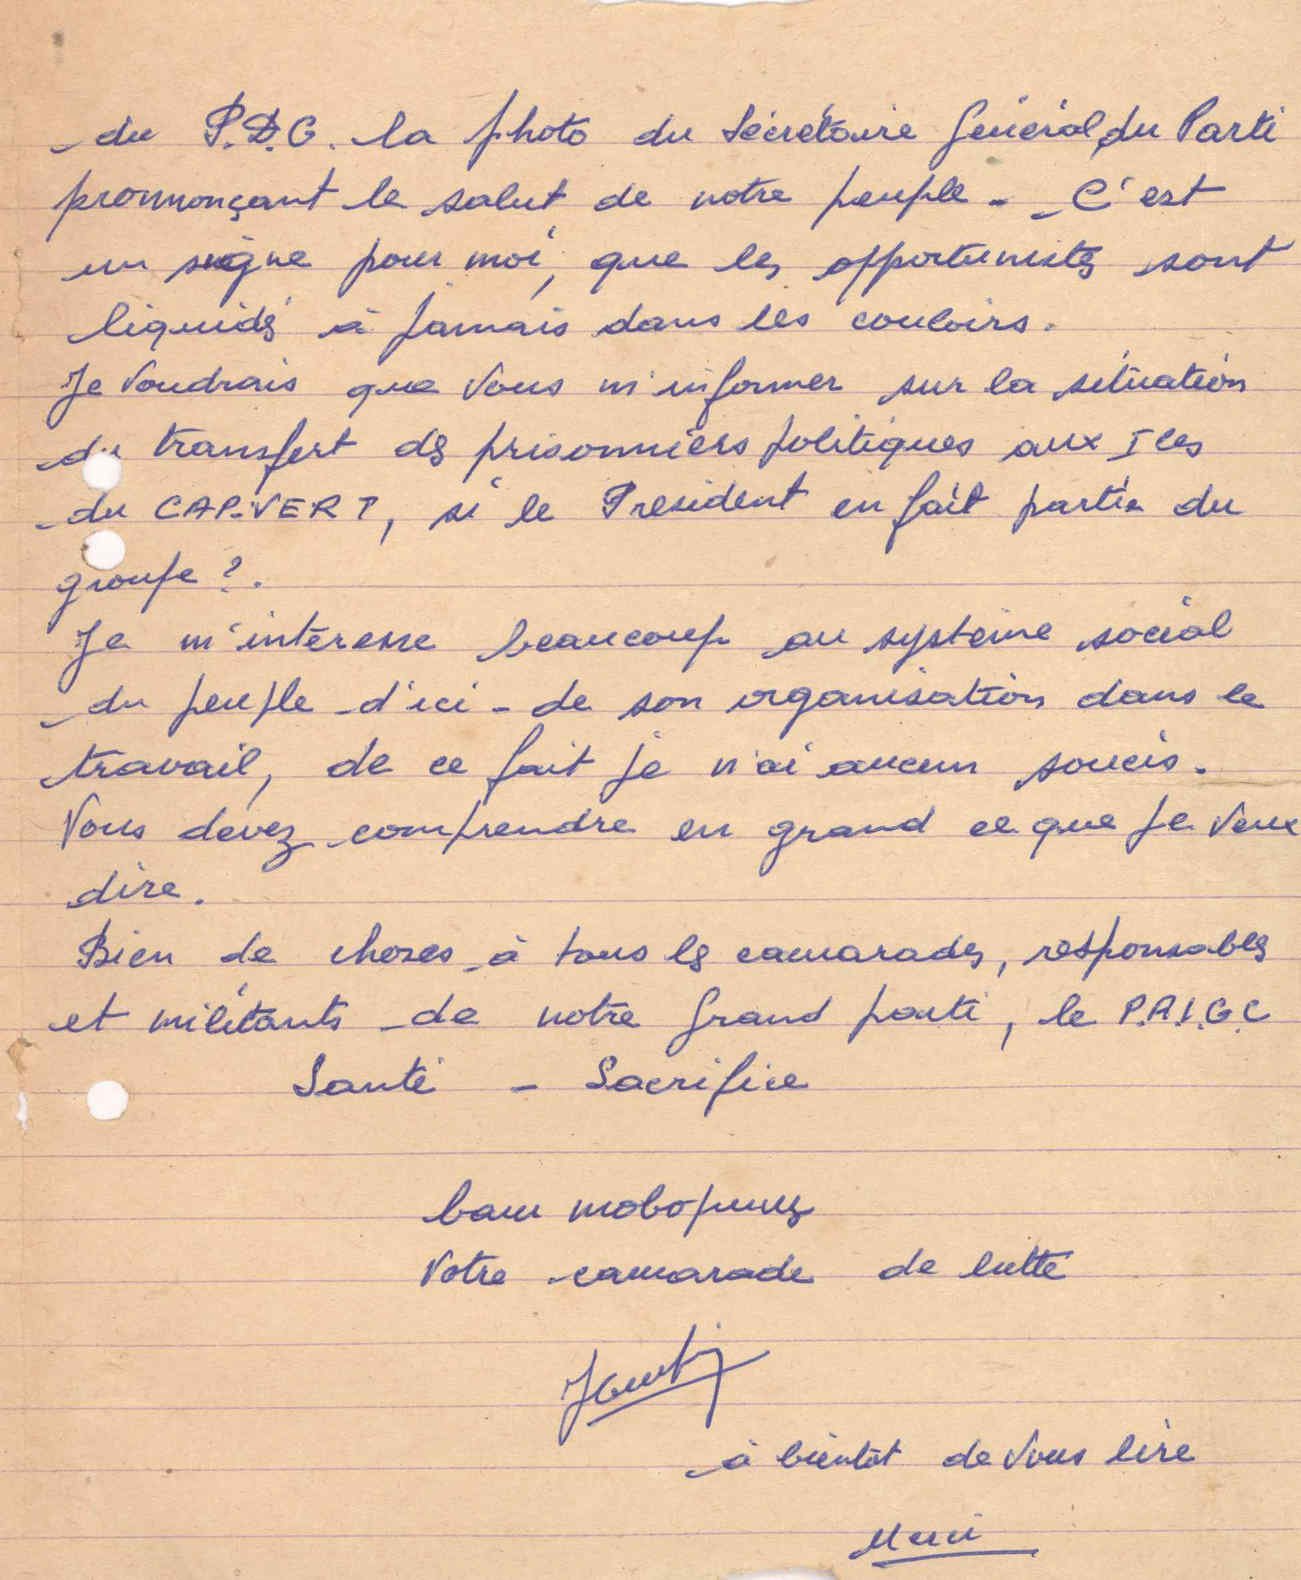 du P.D.G. la photo du Sécrétaire Général du Parti
pronnonçant le salut de notre peuple - C'est
un signe pour moi, que les opportunistes sont
liquidés à jamais dans les couloirs.
Je voudrais que vous m'informer sur la situation
du transfert des prisonniers politiques aux Iles
du CAP-VERT, si le President en fait partie du
groupe ?.
Je m'interesse beaucoup au système social
du peuple d'ici - de son organisation dans le
travail, de ce fait je n'ai aucun soucis.
Vous devez comprendre en grand ce que je veux
dire.
Bien de choses à tous les camarades, responsables
et militants de notre grand parti, le P.A.I.G.C
Santé - Sacrifice
Votre camarade de lutte
à bientôt de vous lire
Merci